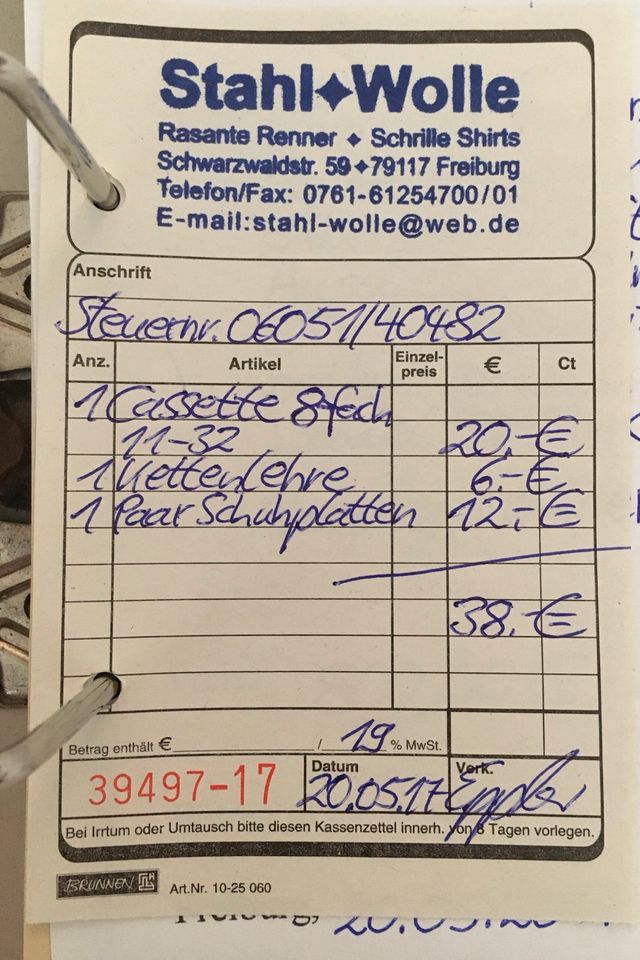 Stahl✦Wolle
Rasante Renner ✦ Schrille Shirts
Schwarzwaldstr. 59✦79117 Freiburg
Telefon/Fax: 0761-61254700/01
E-mail:stahl-wolle@web.de
Anschrift
Steuernr. 06051/40482
Anz. Artikel Einzel-preis € Ct
1 Cassette 8-fach
11-32 20,-€
1 Kettenlehre 6,-€
1 Paar Schuhplatten 12,-€
38,-€
Betrag enthält € / 19 % MwSt.
39497-17 Datum 20.05.17 Verk. Eppler
Bei Irrtum oder Umtausch bitte diesen Kassenzettel innerh. von 8 Tagen vorlegen.
BRUNNEN Art.Nr. 10-25 060
Freiburg,